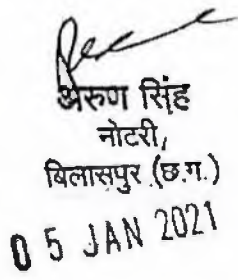 अरुण सिंह
नोटरी,
बिलासपुर (छ.ग.)
05 JAN 2021